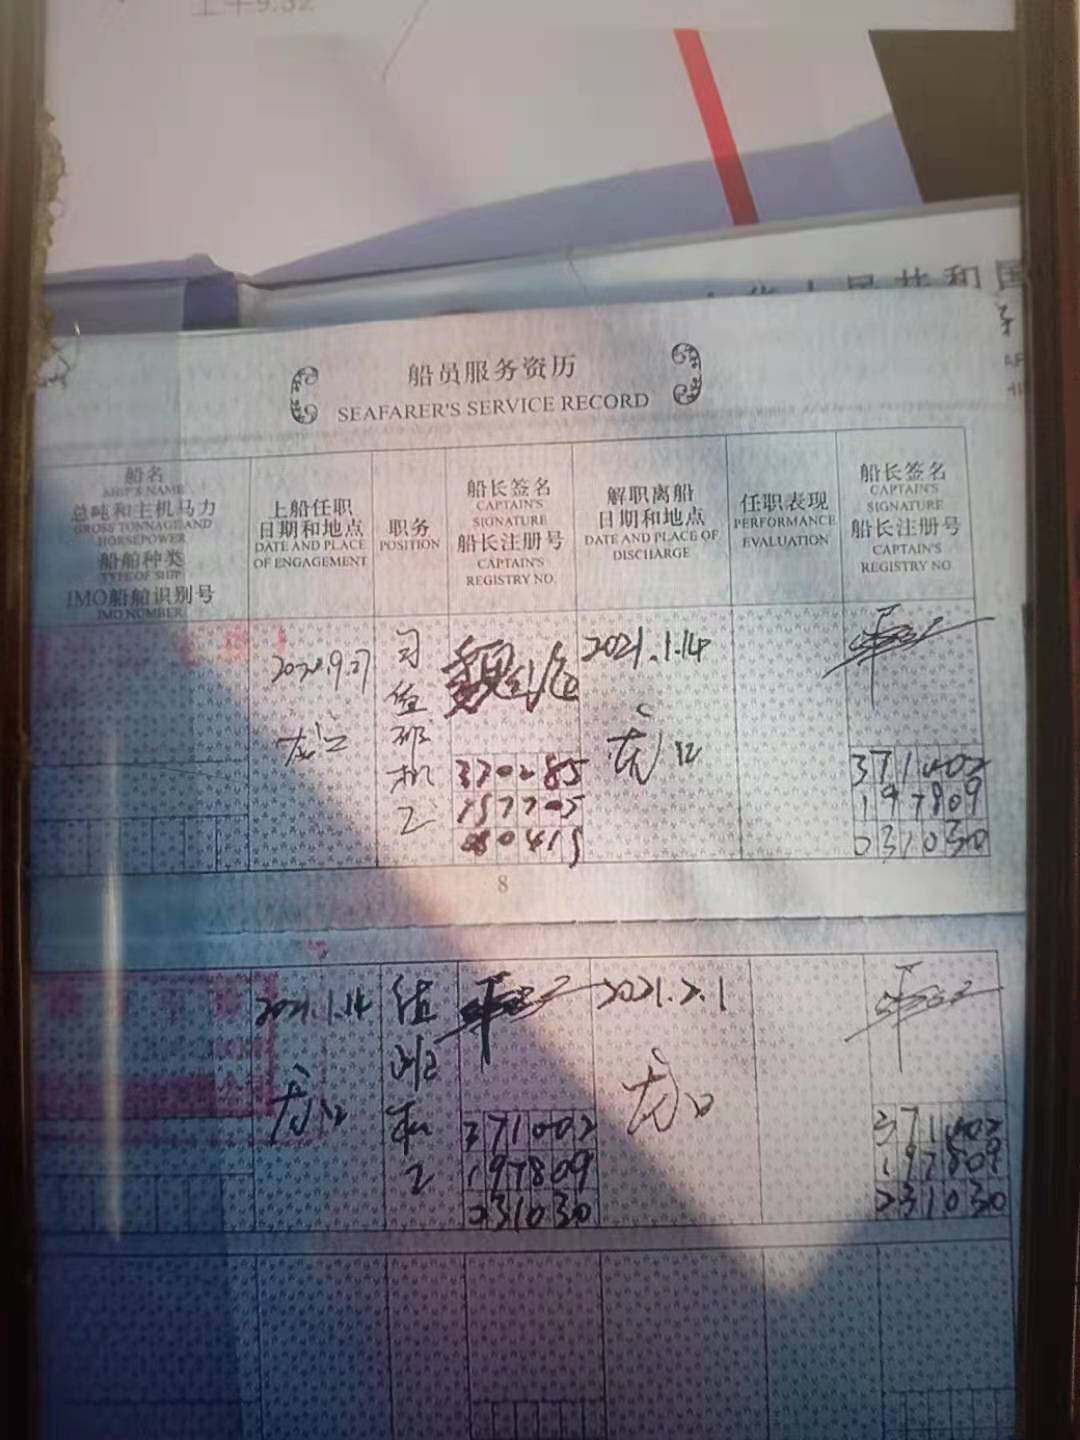 上午9:32
船员服务资历
SEAFARER'S SERVICE RECORD
船名
SHIP'S NAME
总吨和主机马力
GROSS TONNAGE AND
HORSEPOWER
船舶种类
TYPE OF SHIP
IMO船舶识别号
IMO NUMBER
上船任职
日期和地点
DATE AND PLACE
OF ENGAGEMENT
职务
POSITION
船长签名
CAPTAIN'S
SIGNATURE
船长注册号
CAPTAIN'S
REGISTRY NO.
解职离船
日期和地点
DATE AND PLACE OF
DISCHARGE
任职表现
PERFORMANCE
EVALUATION
船长签名
CAPTAIN'S
SIGNATURE
船长注册号
CAPTAIN'S
REGISTRY NO
龙口
值
班
机
2021.1.14
龙口
371402
197809
031030
8
2021.1.14
龙口
值
班
机
371402
197809
031030
2021.2.1
龙口
371402
197809
031030